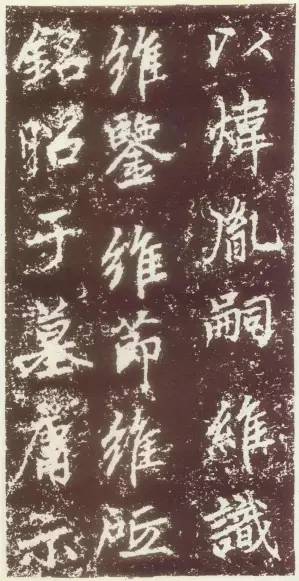 以煒胤嗣維識
維鑒維節維所
銘昭于墓庸示